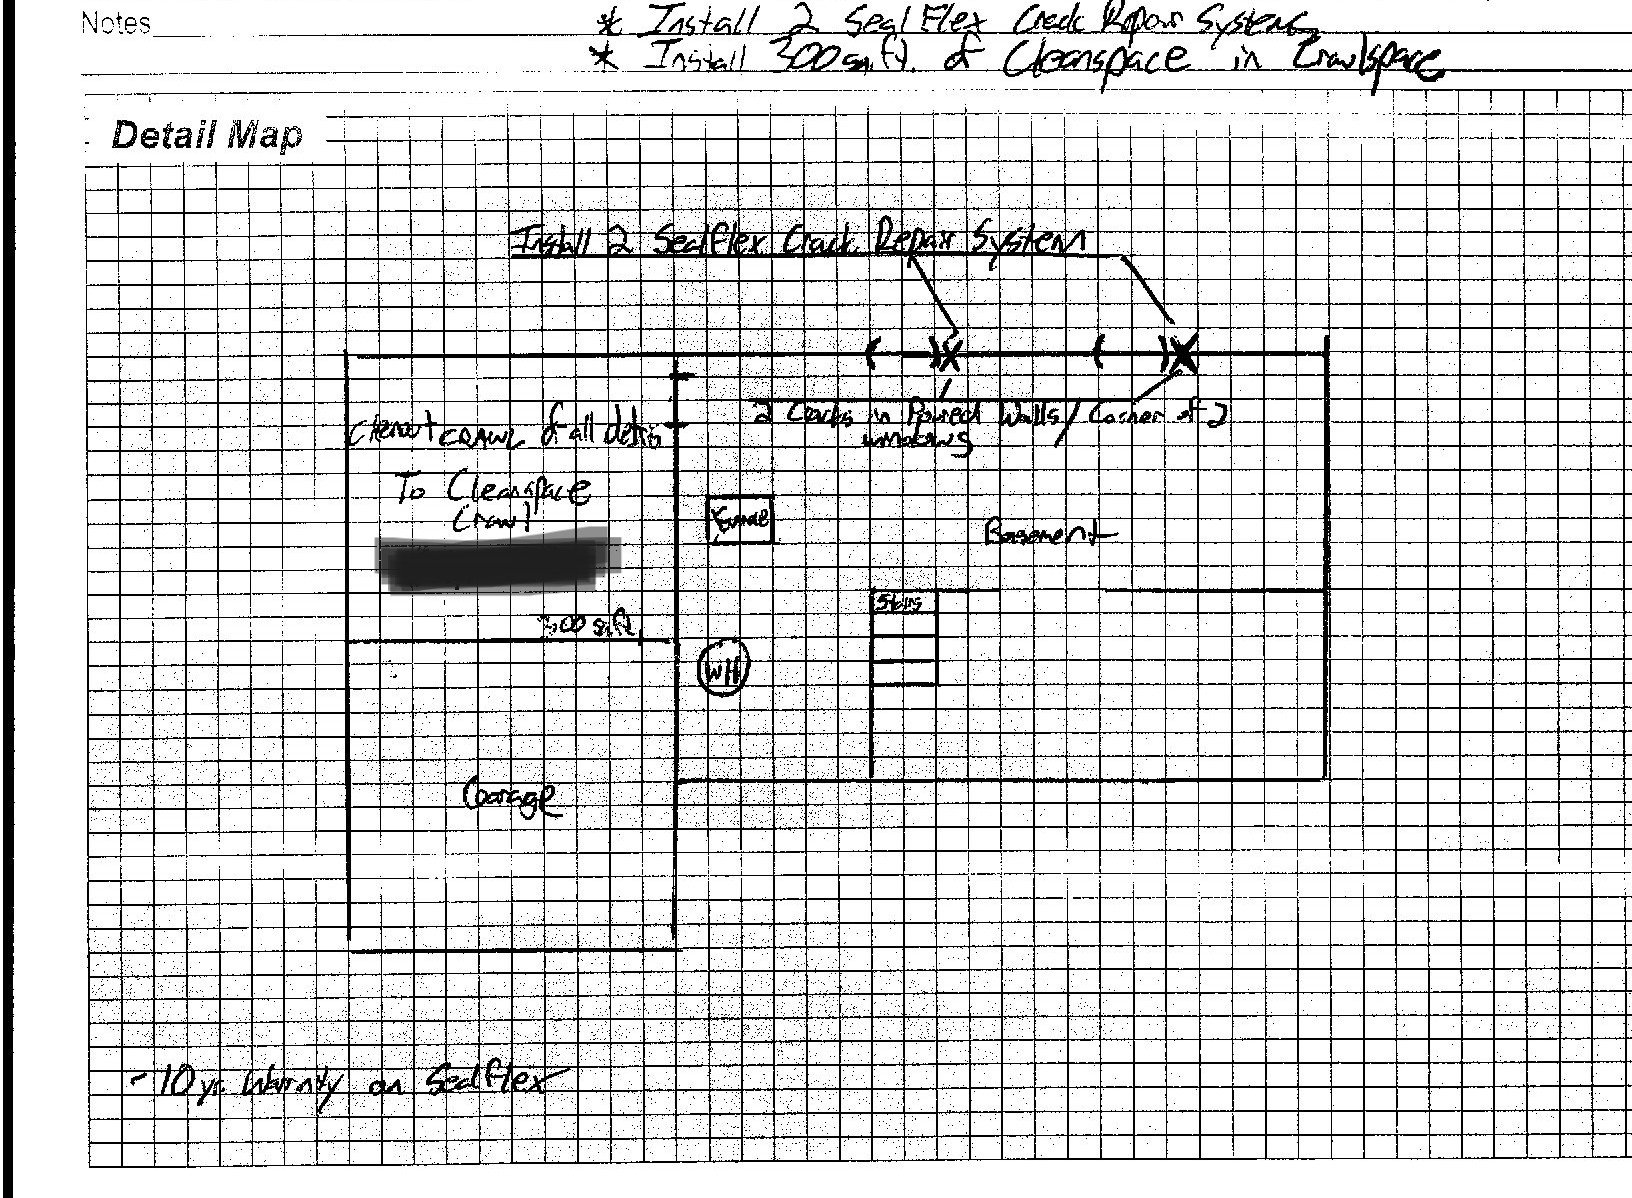 Notes
* Install 2 SealFlex Crack Repair Systems
* Install 300 sq.ft. of Cleanspace in Crawlspace
Detail Map
Install 2 SealFlex Crack Repair System
2 Cracks in Poured Walls / Corner of 2
windows
Cleanout CRAWL of all debris
To Cleanspace
Crawl
Furnace
Basement
Stairs
300 sq.ft.
WH
Garage
- 10 yr. Warranty on SealFlex